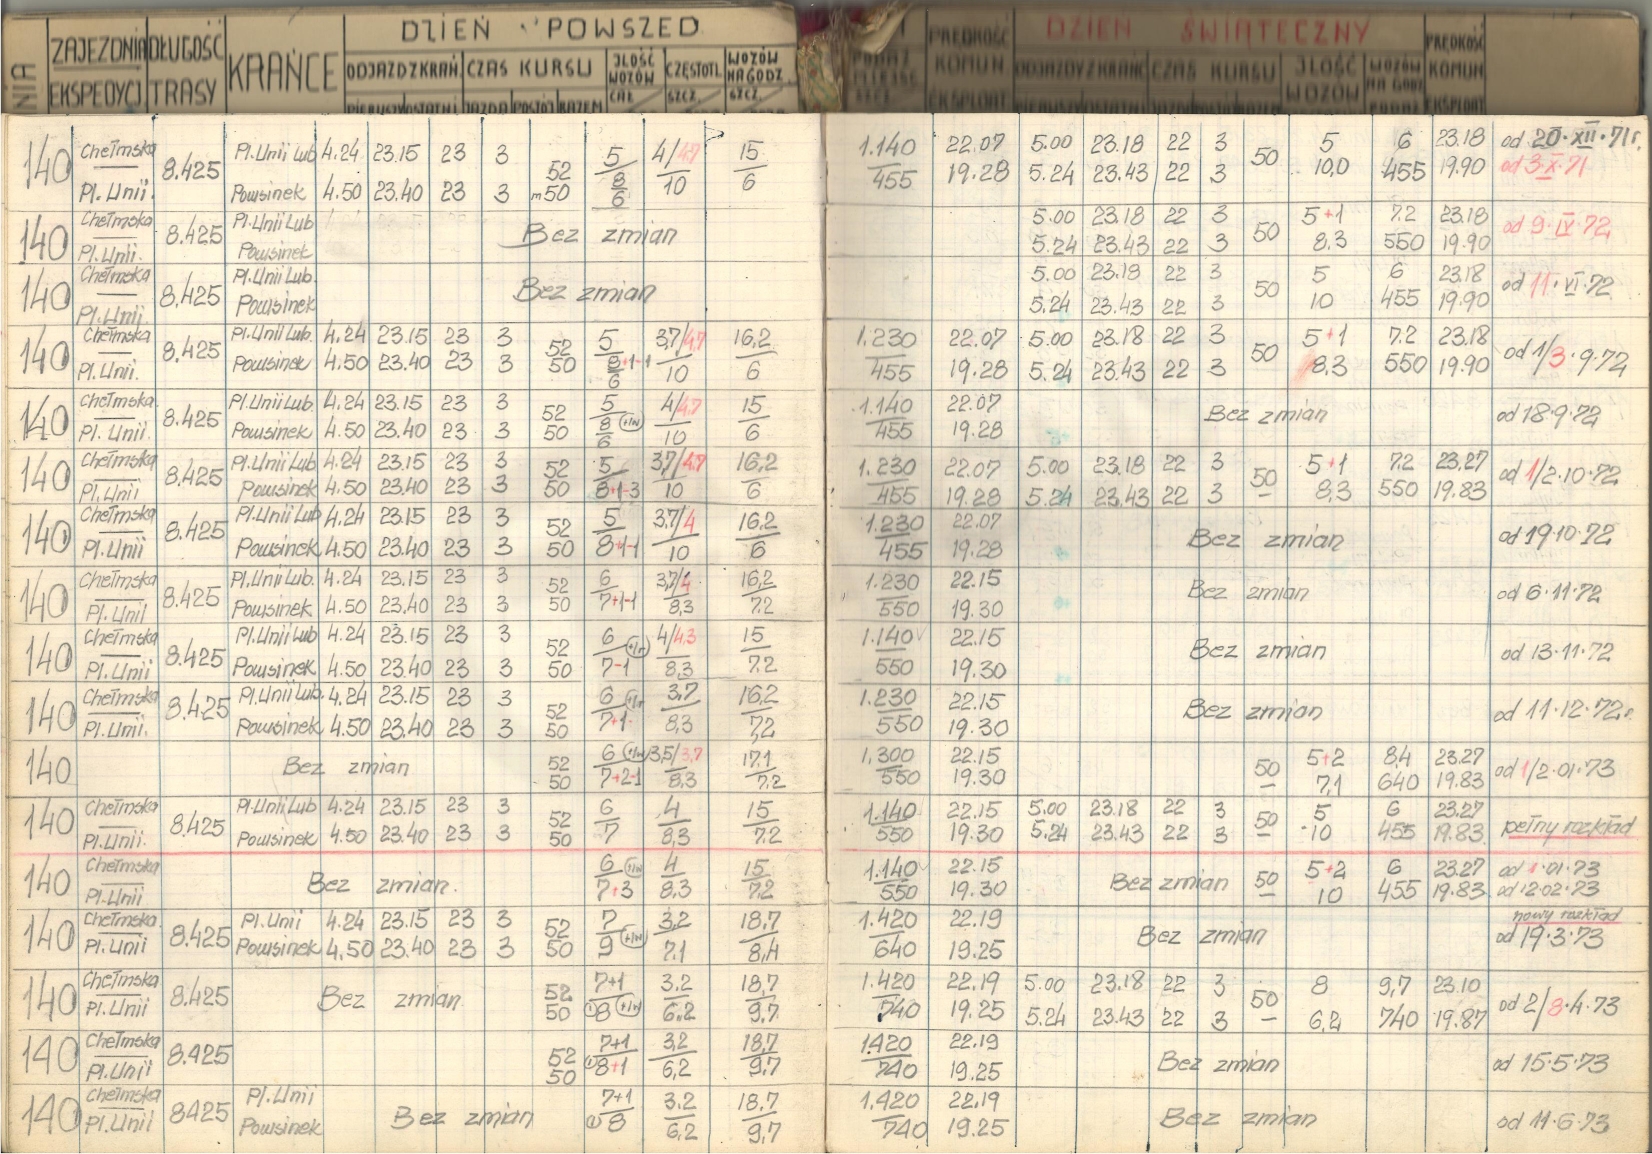 DZIEŃ POWSZED
DZIEN ŚWIĄTECZNY
ZAJEZDNIA DŁUGOŚĆ KRAŃCE ODJAZD Z KRAŃ. CZAS KURSU JLOŚĆ WOZÓW CAŁ. CZĘSTOTL. SZCZ. WOZÓW NA GODZ. SZCZ.
EKSPEDYCJ TRASY
PRĘDKOŚĆ KOMUN. ODJAZDY Z KRAŃC CZAS KURSU JLOŚĆ WOZÓW WOZÓW NA GODZ PRĘDKOŚĆ KOMUN.
140 Chełmska 8.425 Pl.Unii Lub 4.24 23.15 23 3 52 5 4/4.7 15 1.140 22.07 5.00 23.18 22 3 50 5 6 23.18 od 20.XII.71r.
Pl.Unii. Powsinek 4.50 23.40 23 3 m50 8/6 10 6 455 19.28 5.24 23.43 22 3 10,0 455 19.90 od 3.X.71
140 Chełmska 8.425 Pl.Unii Lub Bez zmian 5.00 23.18 22 3 50 5+1 7.2 23.18 od 9.IV.72
Pl.Unii. Powsinek 5.24 23.43 22 3 8,3 550 19.90
140 Chełmska 8.425 Pl.Unii Lub. Bez zmian 5.00 23.18 22 3 50 5 6 23.18 od 11.VI.72
Pl.Unii. Powsinek 5.24 23.43 22 3 10 455 19.90
140 Chełmska 8.425 Pl.Unii Lub. 4.24 23.15 23 3 52 5 3,7/4,7 16,2 1.230 22.07 5.00 23.18 22 3 50 5+1 7.2 23.18 od 1/3.9.72
Pl.Unii. Powsinek 4.50 23.40 23 3 50 8+1-1 6 10 6 455 19.28 5.24 23.43 22 3 8,3 550 19.90
140 Chełmska 8.425 Pl.Unii Lub. 4.24 23.15 23 3 52 5 4/4.7 15 1.140 22.07 Bez zmian od 18.9.72
Pl.Unii. Powsinek 4.50 23.40 23 3 50 8/6 10 6 455 19.28
140 Chełmska 8.425 Pl.Unii Lub 4.24 23.15 23 3 52 5 3,7/4.7 16,2 1.230 22.07 5.00 23.18 22 3 50 5+1 7.2 23.27 od 1/2.10.72
Pl.Unii Powsinek 4.50 23.40 23 3 50 8+1-3 10 6 455 19.28 5.24 23.43 22 3 8,3 550 19.83
140 Chełmska 8.425 Pl.Unii Lub 4.24 23.15 23 3 52 5 3,7/4 16,2 1.230 22.07 Bez zmian od 19.10.72
Pl.Unii Powsinek 4.50 23.40 23 3 50 8+1-1 10 6 455 19.28
140 Chełmska 8.425 Pl.Unii Lub. 4.24 23.15 23 3 52 6 3,7/4 16,2 1.230 22.15 Bez zmian od 6.11.72
Pl.Unii Powsinek 4.50 23.40 23 3 50 7+1-1 8,3 7.2 550 19.30
140 Chełmska 8.425 Pl.Unii Lub 4.24 23.15 23 3 52 6 4/4.3 15 1.140 22.15 Bez zmian od 13.11.72
Pl.Unii Powsinek 4.50 23.40 23 3 50 7-1 8,3 7.2 550 19.30
140 Chełmska 8.425 Pl.Unii Lub. 4.24 23.15 23 3 52 6 3,7 16,2 1.230 22.15 Bez zmian od 11.12.72r.
Pl.Unii. Powsinek 4.50 23.40 23 3 50 7+1 8,3 7,2 550 19.30
140 Bez zmian 52 6 (+1w) 3,5/3,7 17.1 1.300 22.15 50 5+2 8,4 23.27 od 1/2.01.73
50 7+2-1 8.3 7.2 550 19.30 7,1 640 19.83
140 Chełmska 8.425 Pl.Unii Lub 4.24 23.15 23 3 52 6 4 15 1.140 22.15 5.00 23.18 22 3 50 5 6 23.27 pełny rozkład
Pl.Unii. Powsinek 4.50 23.40 23 3 50 7 8,3 7.2 550 19.30 5.24 23.43 22 3 10 455 19.83
140 Chełmska Bez zmian. 6 (+1w) 4 15 1.140 22.15 Bez zmian 50 5+2 6 23.27 od 1.01.73
Pl.Unii 7+3 8,3 7.2 550 19.30 10 455 19.83 od 12.02.73
140 Chełmska 8.425 Pl.Unii 4.24 23.15 23 3 52 7 3,2 18,7 1.420 22.19 Bez zmian nowy rozkład
Pl.Unii Powsinek 4,50 23.40 23 3 50 9 (+1w) 7.1 8,4 640 19.25 od 19.3.73
140 Chełmska 8.425 Bez zmian 52 7+1 3.2 18,7 1.420 22.19 5.00 23.18 22 3 50 8 9,7 23.10 od 2/8.4.73
Pl.Unii 50 8 (+1w) 6.2 9.7 740 19.25 5.24 23.43 22 3 6,2 740 19.87
140 Chełmska 8.425 52 7+1 3,2 18,7 1420 22.19 Bez zmian od 15.5.73
Pl.Unii 50 8+1 6,2 9,7 740 19.25
140 Chełmska 8425 Pl.Unii Bez zmian 7+1 3.2 18,7 1.420 22.19 Bez zmian od 11.6.73
Pl.Unii Powsinek 8 6,2 9,7 740 19.25